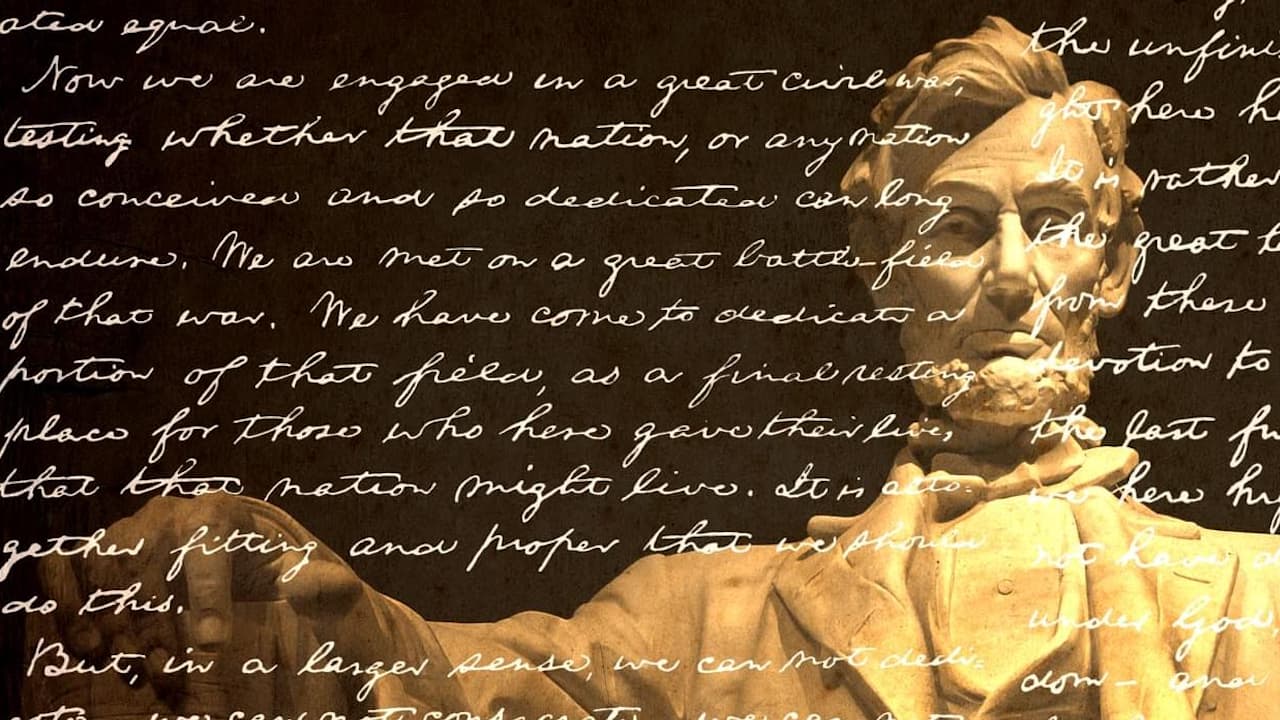 ated equal.
Now we are engaged in a great civil war,
testing whether that nation, or any nation
so conceived and so dedicated can long
endure. We are met on a great battle-field
of that war. We have come to dedicate a
portion of that field, as a final resting
place for those who here gave their lives,
that that nation might live. It is alto-
gether fitting and proper that we should
do this.
But, in a larger sense, we can not dedi-
cate we can not consecrate we can not
the unfini
ght here h
It is rather
the great t
from these
devotion to
the last fu
we here hi
not have d
under God,
dom — and